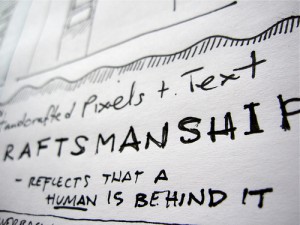 Handcrafted Pixels + Text
RAFTSMANSHIP
- REFLECTS THAT A
HUMAN IS BEHIND IT